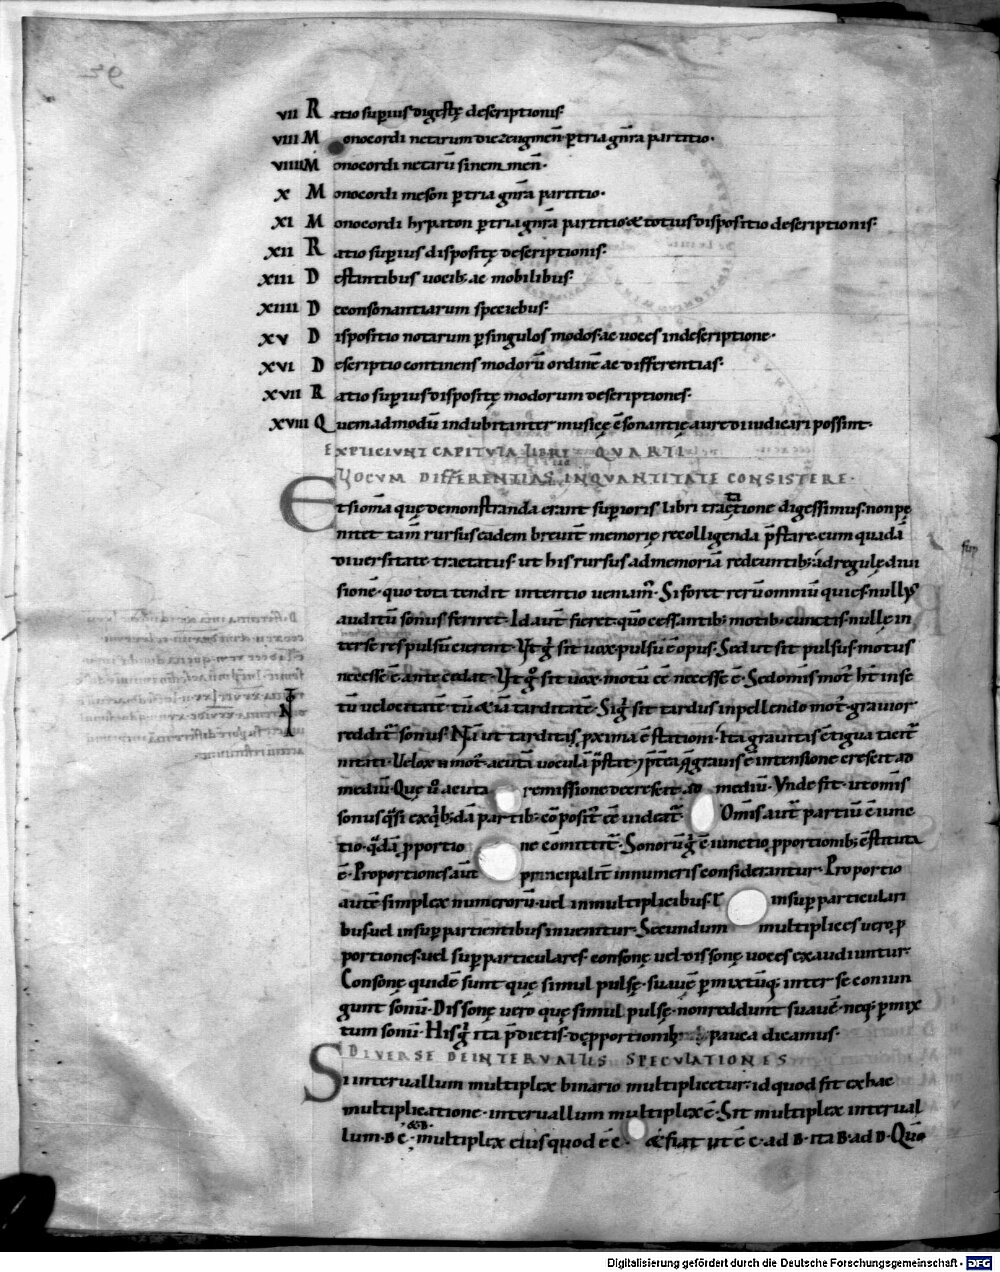 VII Ratio supius digestę descriptionis
VIII Monocordi netarum diezeugmen̄ ptria gn̄ra partitio·
VIIII Monocordi netarū sinemmen̄·
X Monocordi meson p tria gn̄ra partitio·
XI Monocordi hypaton ptria gn̄ra partitio & totius dispositio descriptionis·
XII Ratio supius dispositę descriptionis·
XIII De stantibus uocib; ac mobilibus·
XIIII De consonantiarum speciebus·
XV Dispositio notarum psingulos modos· ac uoces indescriptione·
XVI Descriptio continens modorū ordinē ac differentias·
XVII Ratio supius dispositę modorum descriptiones·
XVIII Quemadmodū indubitanter musicę c̄sonantię aure diiudicari possint·
EXPLICIVNT CAPITVLA LIBRI QVARTI
VOCVM DIFFERENTIAS INQVANTITATE CONSISTERE·
Et si om̄a quę demonstranda erant supioris libri tractione digessimus· non pę
nitet tam̄ rursus eadem breuit̄ memorię recolligenda p̄stare· cum quadā
diuersitate tractatus· ut his rursus admemoriā redeuntib; ad regulę diui
sionē· quo tota tendit intentio ueniam̄· Si foret rerū omniū quies· nullus
auditū sonus feriret· Id aut̄ fieret· quō cessantib; motib; cunctis· nullę in
terse res pulsū cierent· Vt g̊ sit uox· pulsu ē opus· Sed ut sit pulsus· motus
necesse ē antecedat· Vt g̊ sit uox· motū cē necesse ē· Sed om̄is mot; h̄t inse
tū uelocitatē· tū & iā tarditatē· Sig̊ sit tardus inpellendo mot; grauior
reddit̄ sonus· Nā ut tarditas pxima ē stationi· ita grauitas c̄tigua taciť
nitati· Velox u mot; acutā uoculā p̄stat·
mediū· Quę ů acuta remissione decrescit ad mediū· Vnde fit· ut om̄is
sonus quasi ex quib;dā partib; cōposit; cē uideat̄· Om̄is aut̄ partiū c̄iunc
tio· quadā pportio ne cōmittit̄· Sonorū g̊ c̄iunctio pportionib; c̄stituta
ē· Proportiones aut̄ principalit̄ innumeris considerantur· Proportio
autē simplex numerorū· uel inmultiplicibus· l insup particulari
bus uel insup partientibus inuenitur· Secundum multiplices uero p
portiones· uel supparticulares· consonę uel dissonę uoces exaudiuntur·
Consonę quidē sunt quę simul pulsę· suauē pmixtūq; inter se coniun
gunt sonū· Dissonę uero quę simul pulsę· non reddunt suauē· neq; pmix
tum sonū· His g̊ ita p̄dictis· de pportionib; pauca dicamus·
DIVERSE DEINTERVALLIS SPECVLATIONES
Si interuallum multiplex binario multiplicetur· id quod fit ex hac
multiplicatione· interuallum multiplex ē· Sit multiplex interual
lum· B C· multiplex eius quod ē C· & fiat ut ē C· ad B· ita B· ad D· Quō
Digitalisierung gefördert durch die Deutsche Forschungsgemeinschaft - DFG